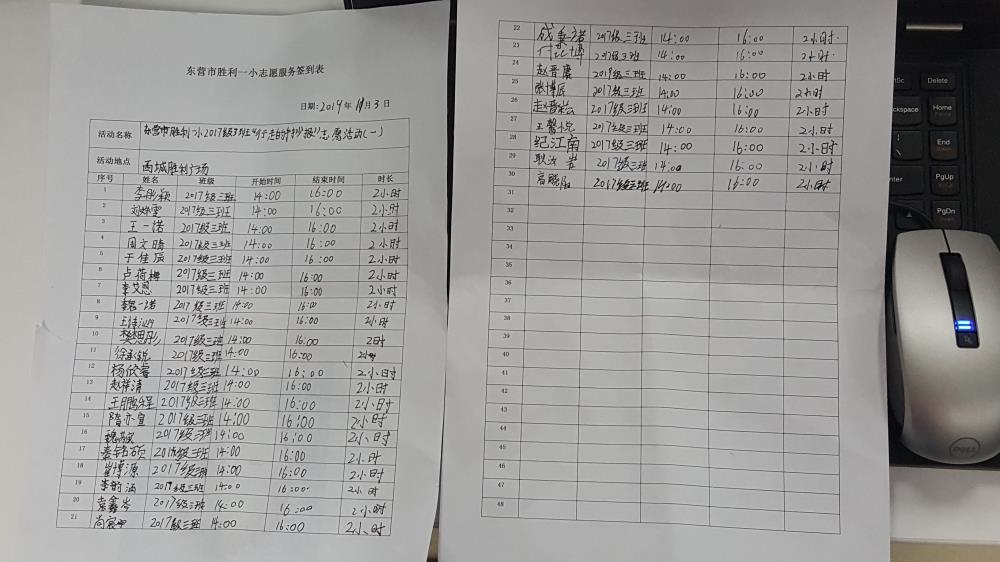 东营市胜利一小志愿服务签到表
日期:2019年11月3日
活动名称 东营市胜利一小2017级3班"行走的 报"志愿活动(一)
活动地点 西城胜利广场
序号 姓名 班级 开始时间 结束时间 时长
1 李彤颖 2017级三班 14:00 16:00 2小时
2 刘 雯 2017级三班 14:00 16:00 2小时
3 王一诺 2017级三班 14:00 16:00 2小时
4 周文晴 2017级三班 14:00 16:00 2小时
5 于佳辰 2017级三班 14:00 16:00 2小时
6 卢荷梅 2017级三班 14:00 16:00 2小时
7 李艾恩 2017级三班 14:00 16:00 2小时
8 魏一诺 2017级三班 14:00 16:00 2小时
9 王 2017级三班 14:00 16:00 2小时
10 樊思彤 2017级三班 14:00 16:00 2小时
11 徐 锐 2017级三班 14:00 16:00 2小时
12 杨欣睿 2017级三班 14:00 16:00 2小时
13 赵梓清 2017级三班 14:00 16:00 2小时
14 王鹏程 2017级三班 14:00 16:00 2小时
15 隋亦宣 2017级三班 14:00 16:00 2小时
16 魏 2017级三班 14:00 16:00 2小时
17 秦铭硕 级三班 14:00 16:00 2小时
18 崔博源 2017级三班 14:00 16:00 2小时
19 李 涵 2019级三班 14:00 16:00 2小时
20 袁鑫岑 2017级三班 14:00 16:00 2小时
21 尚宸 2017级三班 14:00 16:00 2小时
22 成秉诺 2017级三班 14:00 16:00 2小时
23 付 博 2017级三班 14:00 16:00 2小时
24 赵晋康 2019级三班 14:00 16:00 2小时
25 张博辰 2017级三班 14:00 16:00 2小时
26 赵晋松 2017级三班 14:00 16:00 2小时
27 王馨悦 2017级三班 14:00 16:00 2小时
28 纪江南 2017级三班 14:00 16:00 2小时
29 耿 2017级三班 14:00 16:00 2小时
30 高晓阳 2017级三班 14:00 16:00 2小时
31
32
33
34
35
36
37
38
39
40
41
42
43
44
45
46
47
48
Delete
Home
End
PgUp
PgDn
DELL